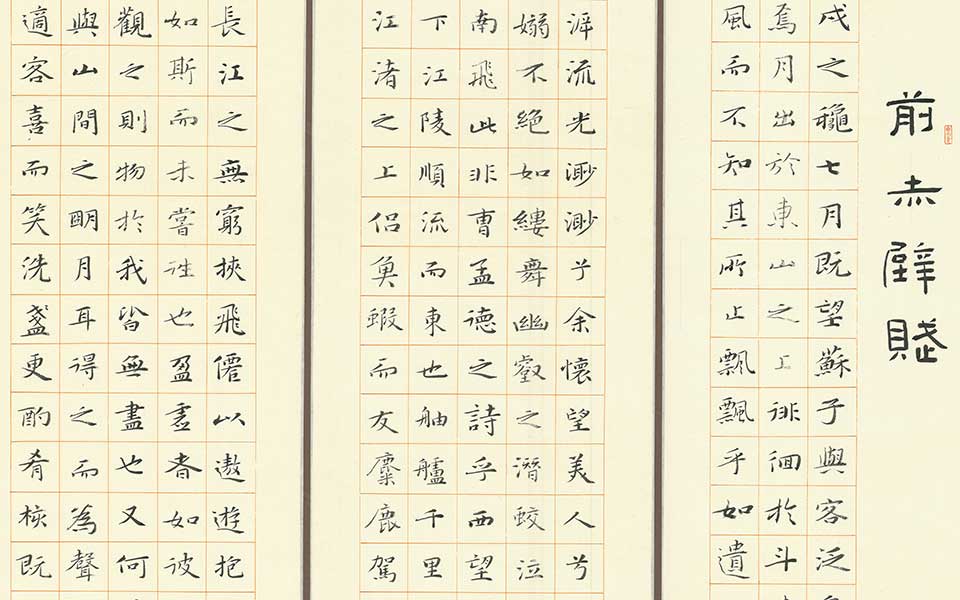 前赤壁賦
戌之龝七月既望蘇子與客泛
焉月出於東山之上徘徊於斗
風而不知其所止飄飄乎如遺
泝流光渺渺兮余懷望美人兮
嫋不絕如縷舞幽壑之潛蛟泣
南飛此非曹孟德之詩乎西望
下江陵順流而東也舳艫千里
江渚之上侶魚蝦而友麋鹿駕
長江之無窮挾飛僊以遨遊抱
如斯而未嘗往也盈虛者如彼
觀之則物於我皆無盡也又何
與山間之明月耳得之而為聲
適客喜而笑洗盞更酌肴核既